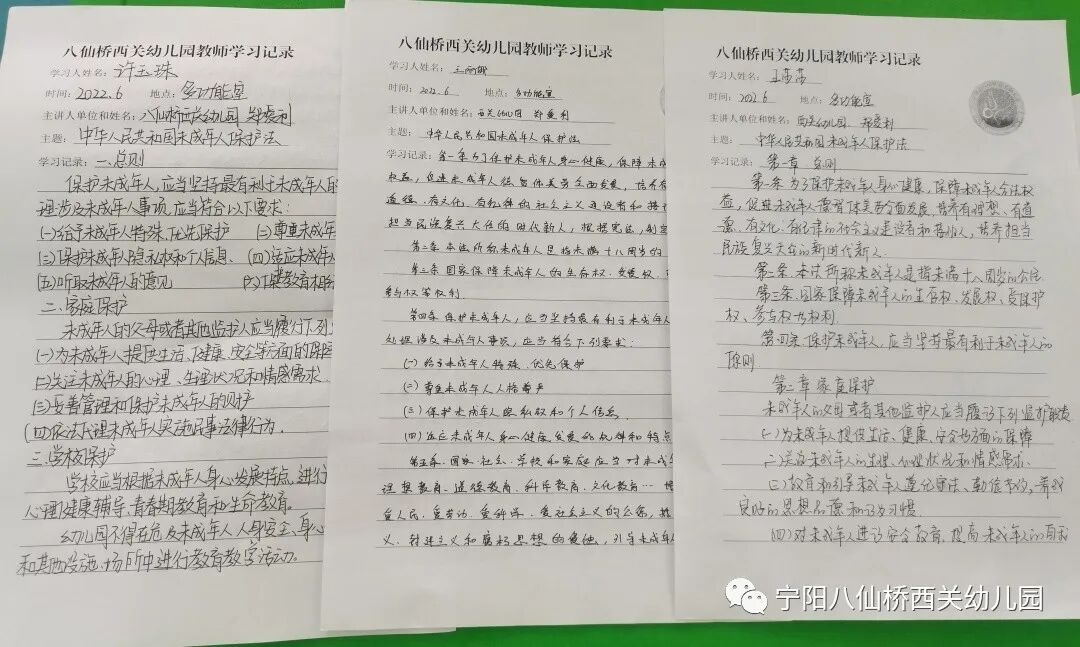 八仙桥西关幼儿园教师学习记录
学习人姓名：许玉珠
时间：2022.6 地点：多功能室
主讲人单位和姓名：八仙桥西关幼儿园 郑爱利
主题：中华人民共和国未成年人保护法
学习记录：一.总则
保护未成年人，应当坚持最有利于未成年人的
理涉及未成年人事项，应当符合以下要求：
(一)给予未成年人特殊、优先保护 (二)尊重未成年
(三)保护未成年人隐私权和个人信息、(四)适应未成年
(五)听取未成年人的意见 (六)保护教育相
二、家庭保护
未成年人的父母或者其他监护人应当履行下列
(一)为未成年人提供生活、健康、安全等方面的保障
(二)关注未成年人的心理、生理状况和情感需求.
(三)妥善管理和保护未成年人的财产
(四)依法代理未成年人实施民事法律行为.
三.学校保护
学校应当根据未成年人身心发展特点，进行
心理健康辅导、青春期教育和生命教育。
幼儿园不得在危及未成年人人身安全、身心
和其他设施、场所中进行教育教学活动。
八仙桥西关幼儿园教师学习记录
学习人姓名：王丽娜
时间：2022.6 地点：多功能室
主讲人单位和姓名：西关幼儿园 郑爱利
主题：中华人民共和国未成年人保护法
学习记录：第一条为了保护未成年人身心健康，保障未成
权益，促进未成年人德智体美劳全面发展，培养有
道德、有文化、有纪律的社会主义建设者和接
担当民族复兴大任的时代新人，根据宪法，制定
第二条 本法所称未成年人是指未满十八周岁的
第三条 国家保障未成年人的生存权、发展权、
参与权等权利.
第四条 保护未成年人，应当坚持最有利于未成年人
处理涉及未成年人事项，应当符合下列要求：
(一)给予未成年人特殊、优先保护
(二)尊重未成年人人格尊严
(三)保护未成年人隐私权和个人信息
(四)适应未成年人身心健康发展的规律和特点
第五条.国家、社会、学校和家庭应当对未成年
理想教育、道德教育、科学教育、文化教育…
爱人民、爱劳动、爱科学、爱社会主义的公德，
义、封建主义和腐朽思想的侵蚀，引导未成年
八仙桥西关幼儿园教师学习记录
学习人姓名：王莎莎
时间：2022.6 地点：多功能室
主讲人单位和姓名：西关幼儿园 郑爱利
主题：中华人民共和国未成年人保护法
学习记录：第一章 总则
第一条 为了保护未成年人身心健康、保障未成年人合法权
益，促进未成年人德智体美劳全面发展，培养有理想、有道
德、有文化、有纪律的社会主义建设者和接班人，培养担当
民族复兴大任的新时代新人.
第二条、本法所称未成年人是指未满十八周岁的公民
第三条、国家保障未成年人的生存权、发展权、受保护
权、参与权等权利.
第四条 保护未成年人，应当坚持最有利于未成年人的
原则.
第二章 家庭保护
未成年人的父母或者其他监护人应当履行下列监护职责
(一)为未成年人提供生活、健康、安全等方面的保障
(二)关注未成年人的生理、心理状况和情感需求.
(三)教育和引导未成年人遵纪守法、勤俭节约，养成
良好的思想品德和行为习惯
(四)对未成年人进行安全教育，提高未成年人的自我
宁阳八仙桥西关幼儿园